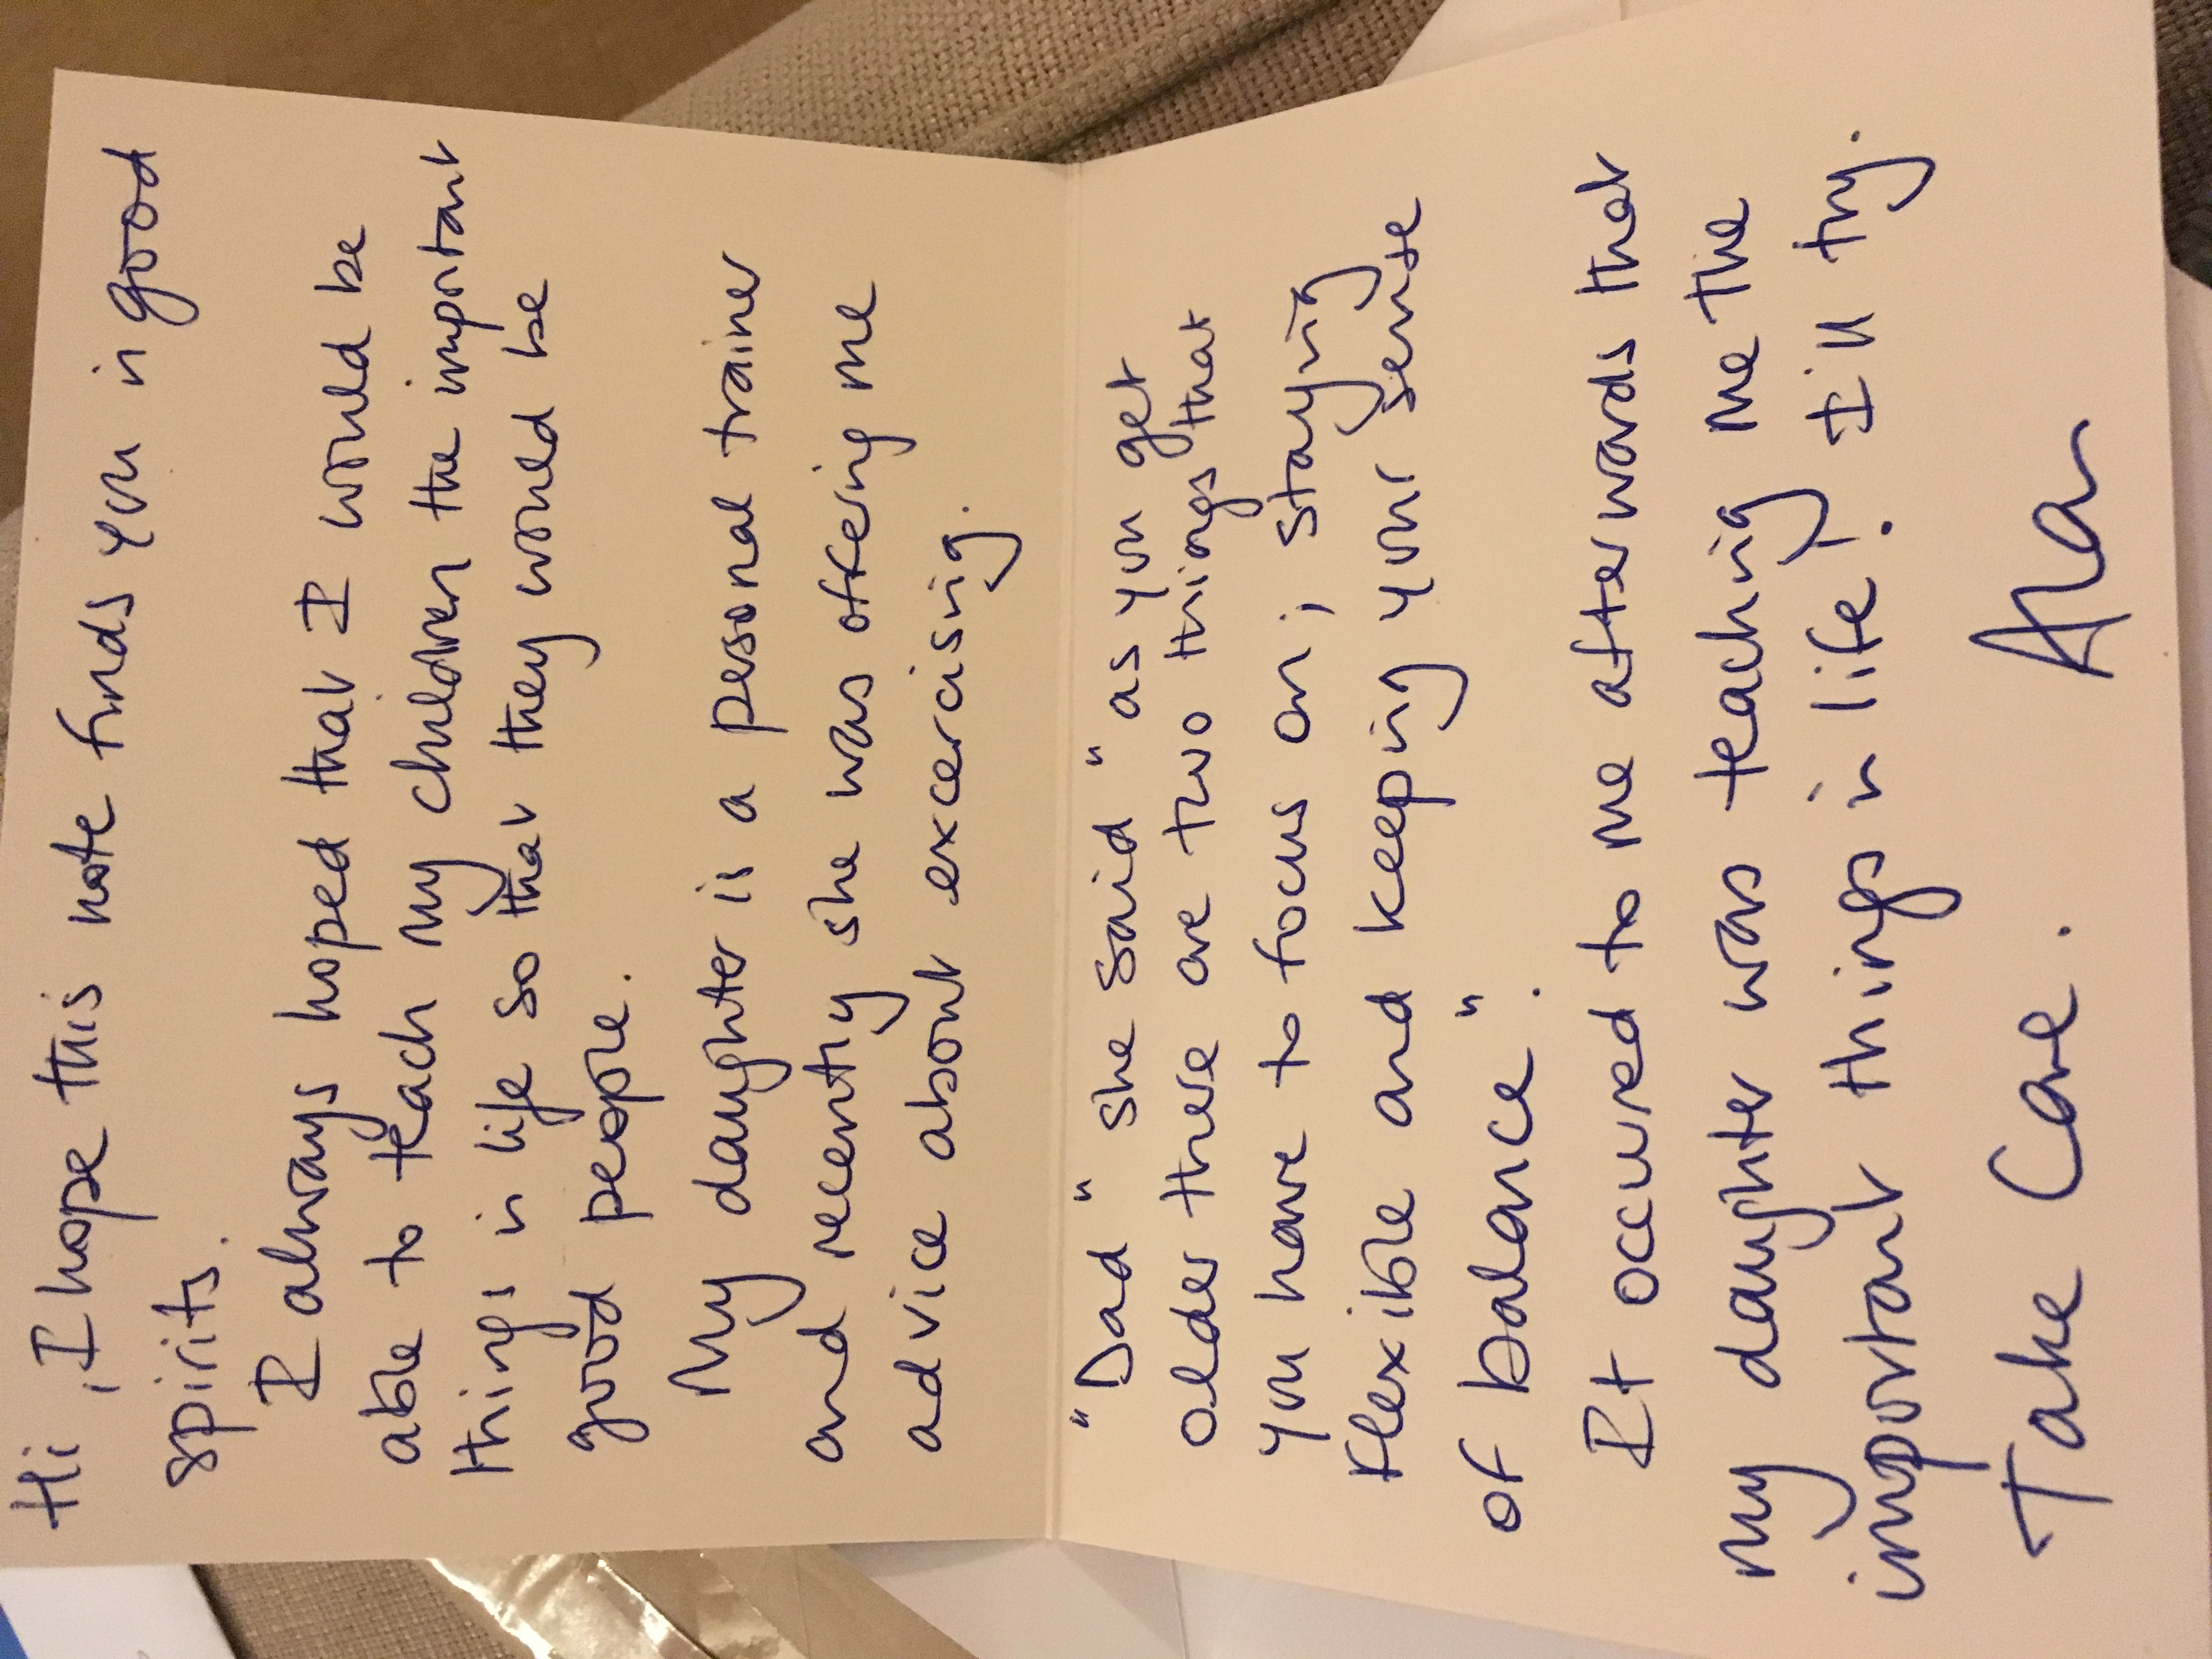 Hi, I hope this note finds you in good
spirits.
I always hoped that I would be
able to teach my children the important
things in life so that they would be
good people.
My daughter is a personal trainer
and recently she was offering me
advice about excercising.
"Dad" she said "as you get
older there are two things that
you have to focus on; staying
flexible and keeping your sense
of balance".
It occured to me afterwards that
my daughter was teaching me the
important things in life! I'll try.
Take Care. Alan